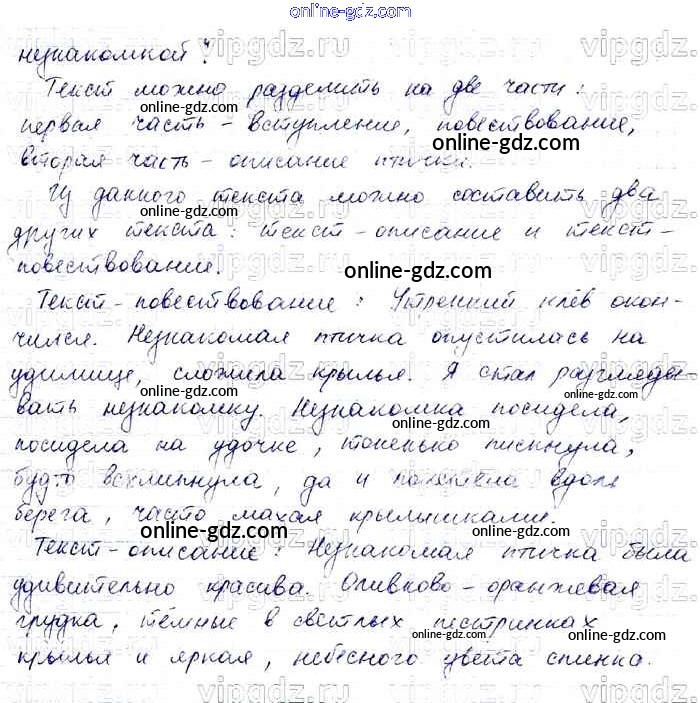 online-gdz.com
незнакомкой".
Текст можно разделить на две части:
первая часть - вступление, повествование,
вторая часть - описание птички.
Из данного текста можно составить два
других текста: текст-описание и текст-
повествование.
Текст-повествование: Утренний клёв окон-
чился. Незнакомая птичка опустилась на
удилище, сложила крылья. Я стал разгляды-
вать незнакомку. Незнакомка посидела,
посидела на удочке, тоненько пискнула,
будто всхлипнула, да и полетела вдоль
берега, часто махая крылышками.
Текст-описание: Незнакомая птичка была
удивительно красива. Оливково-оранжевая
грудка, тёмные в светлых пестринках
крылья и яркая, небесного цвета спинка.